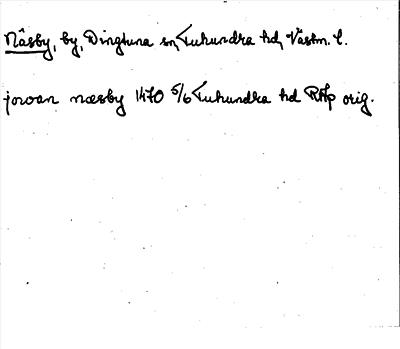 Näsby, by, Dingtuna sn, Tuhundra hd, Västm. l.
jowan næsby 1470 5/6 Tuhundra hd RAp orig.